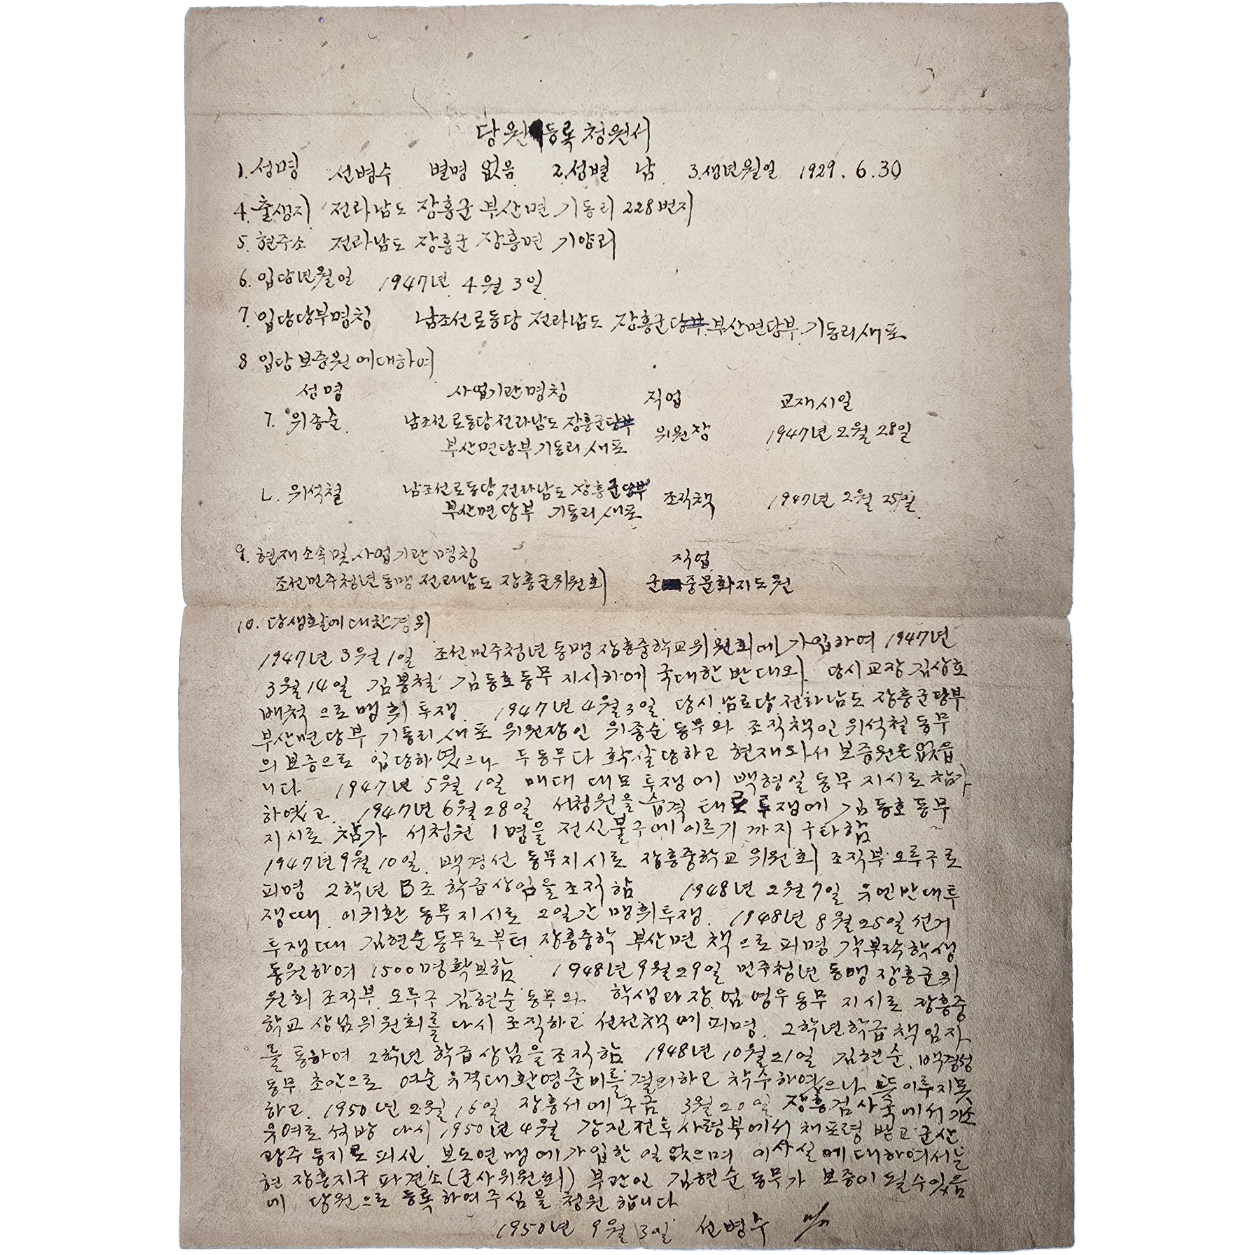 당원등록 청원서
1. 성명 선병수 별명 없음 2. 성별 남 3. 생년월일 1929. 6. 30
4. 출생지 전라남도 장흥군 부산면 기동리 228번지
5. 현주소 전라남도 장흥군 장흥면 기양리
6. 입당년월일 1947년 4월 3일
7. 입당당부명칭 남조선로동당 전라남도 장흥군당부 부산면당부 기동리 세포
8. 입당보증원에 대하여
성명 사업기관명칭 직업 교재시일
ㄱ. 위종순 남조선로동당 전라남도 장흥군당부
부산면당부 기동리 세포 위원장 1947년 2월 28일
ㄴ. 위석철 남조선로동당 전라남도 장흥군당부
부산면당부 기동리 세포 조직책 1947년 2월 25일
9. 현재 소속 및 사업기관 명칭 직업
조선민주청년동맹 전라남도 장흥군위원회 군중문화지도원
10. 당생활에 대한 경위
1947년 3월 1일 조선민주청년동맹 장흥중학교위원회에 가입하여 1947년
3월 14일 김봉철 김동호동무 지시하에 국대안 반대와 당시 교장 김상호
배척으로 맹휴투쟁. 1947년 4월 3일 당시 남로당 전라남도 장흥군당부
부산면당부 기동리 세포 위원장인 위종순 동무와 조직책인 위석철 동무
의 보증으로 입당하였으나 두동무 다 학살당하고 현재와서 보증원은 없습
니다. 1947년 5월 1일 매대 대모투쟁에 백형일 동무 지시로 참가
하였고. 1947년 6월 28일 서청원을 습격 투쟁에 김동호 동무
지시로 참가 서청원 1명을 전신불구에 이르기까지 구타함
1947년 9월 10일. 백경선 동무지시로 장흥중학교 위원회 조직부 오루구로
피명 2학년 B조 학급상임을 조직함 1948년 2월 7일 유엔반대투
쟁때. 이귀환 동무지시로 2일간 맹휴투쟁. 1948년 8월 25일 선거
투쟁때 김현순동무로부터 장흥중학 부산면 책으로 피명 각부락학생
동원하여 1500명 확보함 1948년 9월 29일 민주청년동맹 장흥군위
원회 조직부 오루구 김현순 동무와 학생과장 임영우 동무 지시로 장흥중
학교 상임위원회를 다시 조직하고 선전책에 피명. 2학년학급 책임자
를 통하여 2학년 학급상임을 조직함 1948년 10월 21일 김현순. 백경선
동무 초안으로 여순 유격대환영준비를 결의하고 착수하였으나 뜻 이루지못
하고. 1950년 2월 16일 장흥서에 구금 3월 20일 장흥검사국에서 기소
유예로 석방 다시 1950년 4월 강진전투사령부에서 체포령 받고 군산
광주 등지로 피신. 보도연맹에 가입한 일 없으며 이사실에 대하여서는
현 장흥지구 파견소(군사위원회) 부관인 김현순 동무가 보증이 될수있음
에 당원으로 등록하여주심을 청원합니다
1950년 9월 3일 선병수